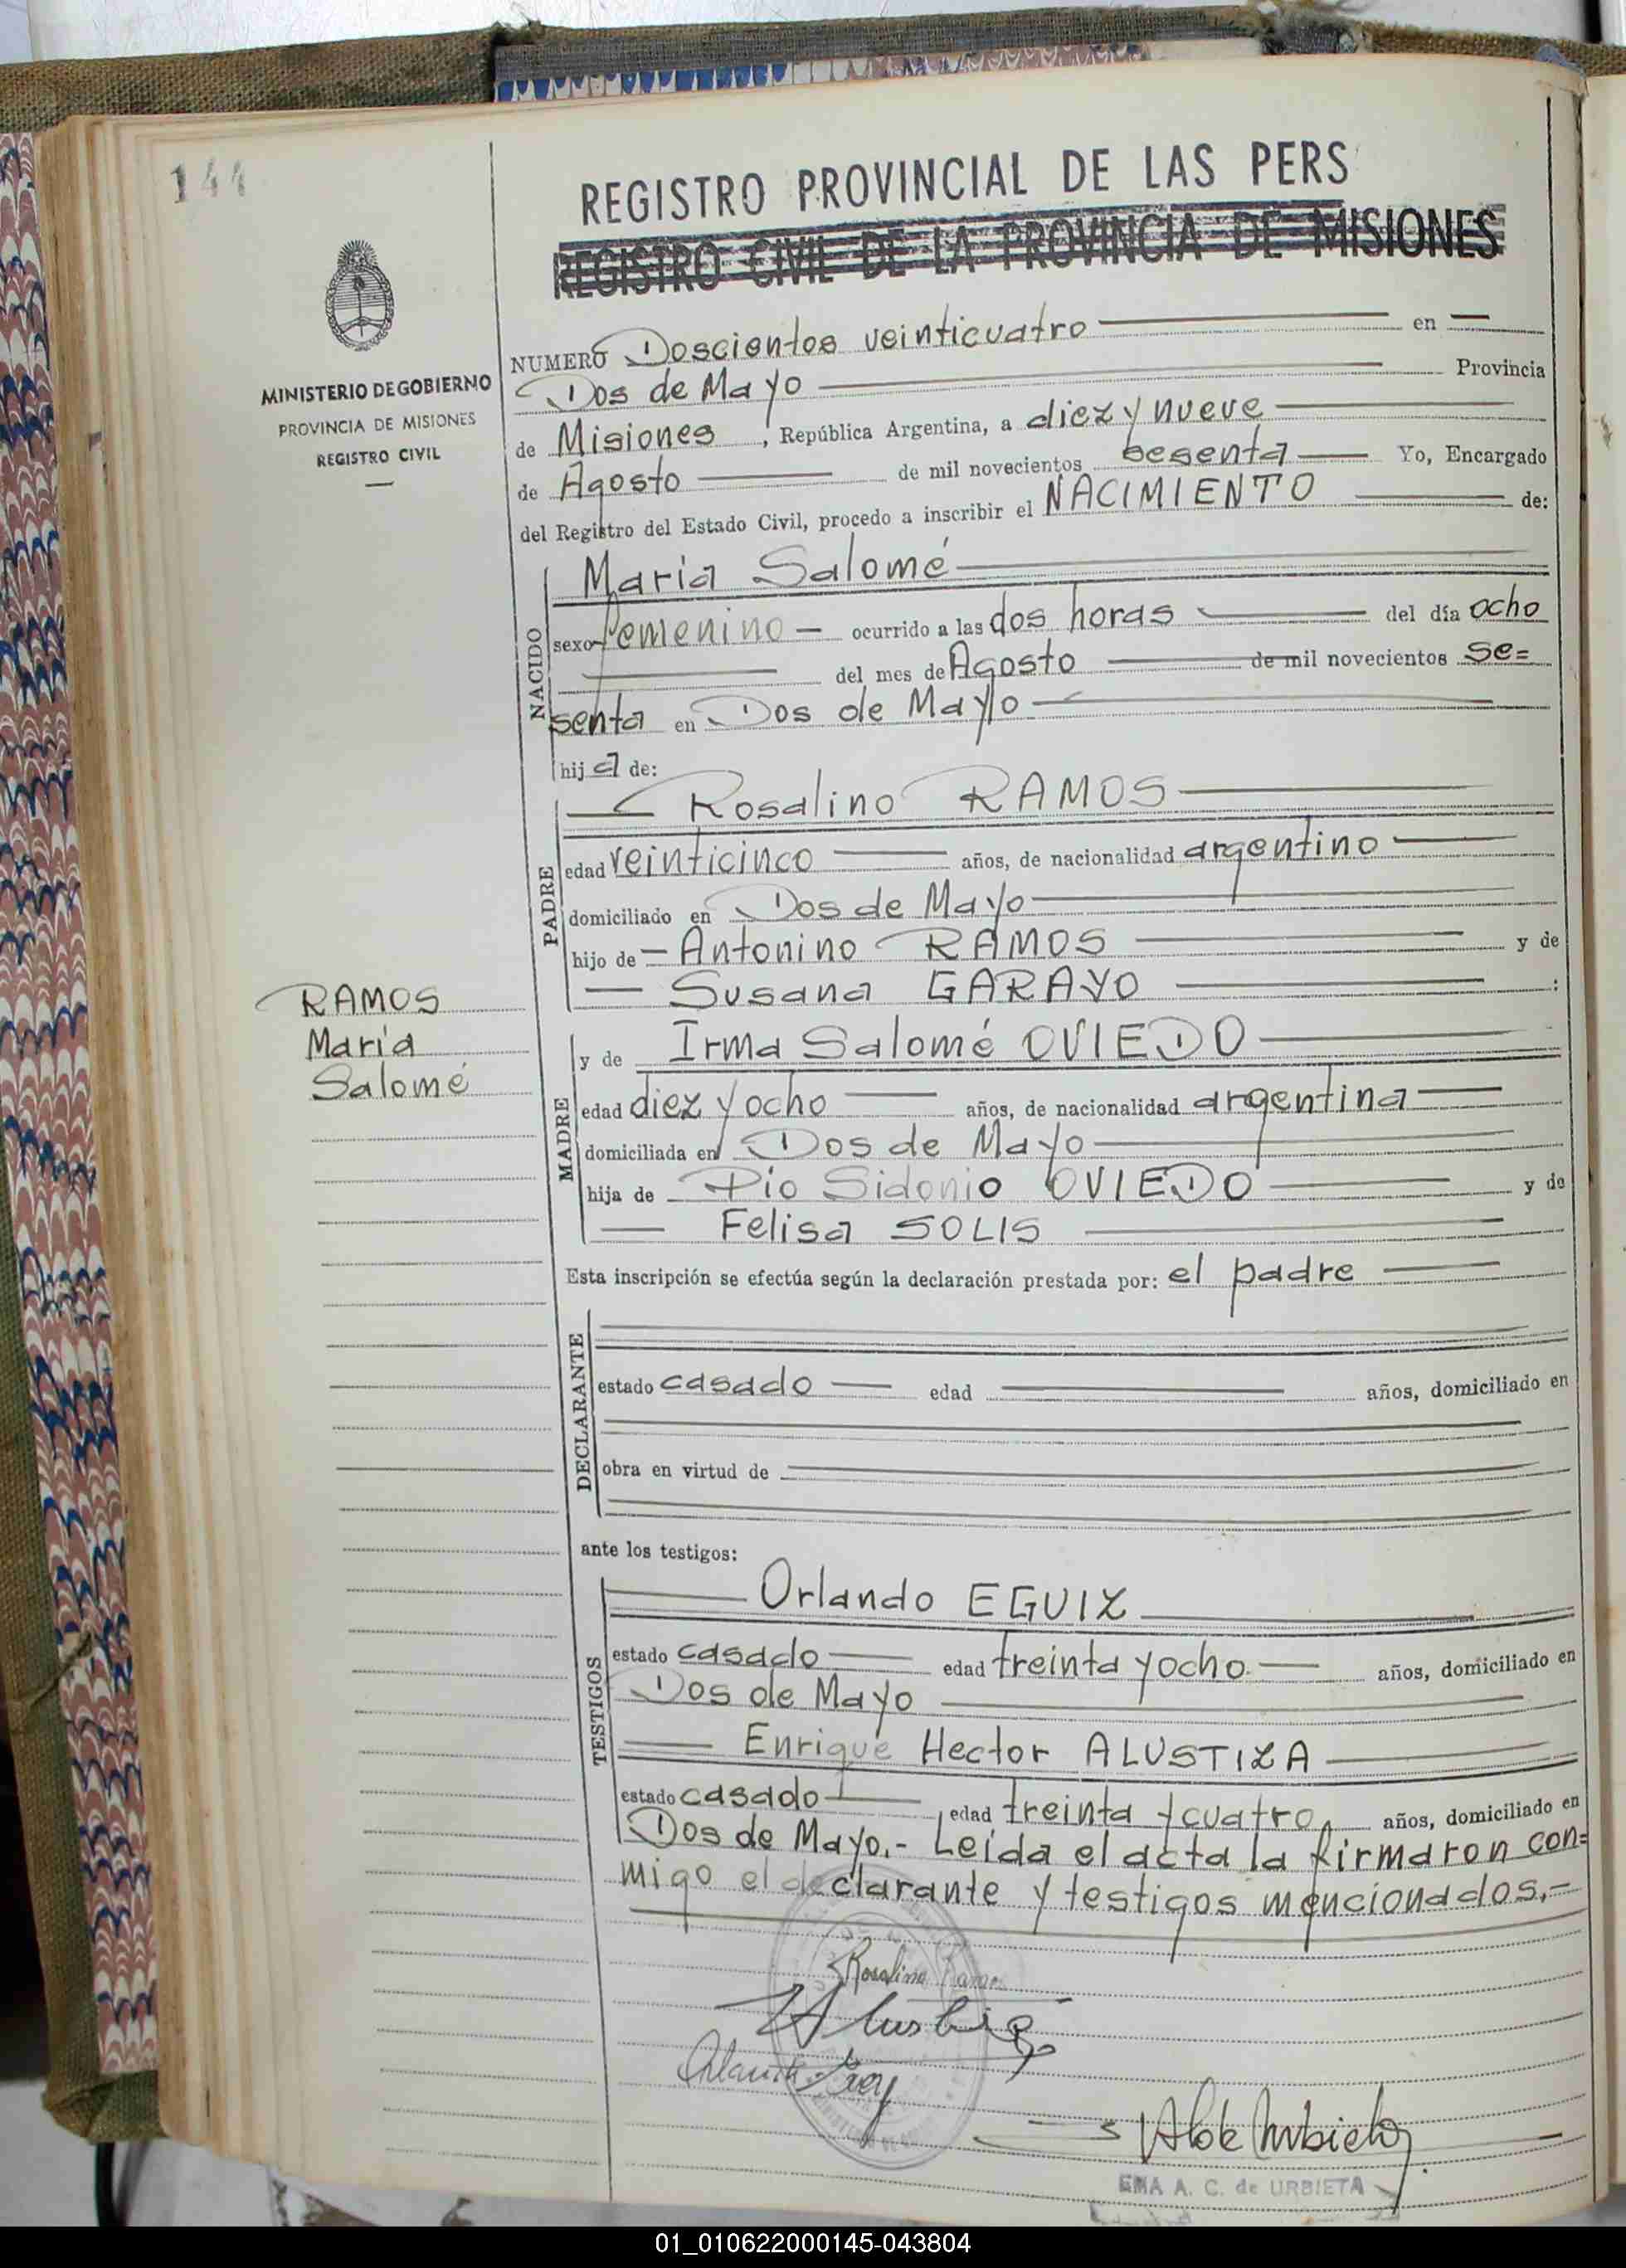 144
REGISTRO PROVINCIAL DE LAS PERS
REGISTRO CIVIL DE LA PROVINCIA DE MISIONES
MINISTERIO DE GOBIERNO
PROVINCIA DE MISIONES
REGISTRO CIVIL
NUMERO Doscientos veinticuatro en
Dos de Mayo Provincia
de Misiones, República Argentina, a diez y nueve
de Agosto de mil novecientos sesenta Yo, Encargado
del Registro del Estado Civil, procedo a inscribir el NACIMIENTO de:
NACIDO
María Salomé
sexo femenino ocurrido a las dos horas del día ocho
del mes de Agosto de mil novecientos se=
senta en Dos de Mayo
hija de:
PADRE
Rosalino RAMOS
edad veinticinco años, de nacionalidad argentino
domiciliado en Dos de Mayo
hijo de Antonino RAMOS y de
Susana GARAYO :
RAMOS
María
Salomé
MADRE
y de Irma Salomé OVIEDO
edad diez y ocho años, de nacionalidad argentina
domiciliada en Dos de Mayo
hija de Pío Sidonio OVIEDO y de
Felisa SOLIS
Esta inscripción se efectúa según la declaración prestada por: el padre
DECLARANTE
estado casado edad años, domiciliado en
obra en virtud de
ante los testigos:
TESTIGOS
Orlando EGUIZ
estado casado edad treinta y ocho años, domiciliado en
Dos de Mayo
Enrique Hector ALUSTIZA
estado casado edad treinta y cuatro, años, domiciliado en
Dos de Mayo.- Leída el acta la firmaron con=
migo el declarante y testigos mencionados.-
Rosalino Ramos
EMA A. C. de URBIETA
01_010622000145-043804